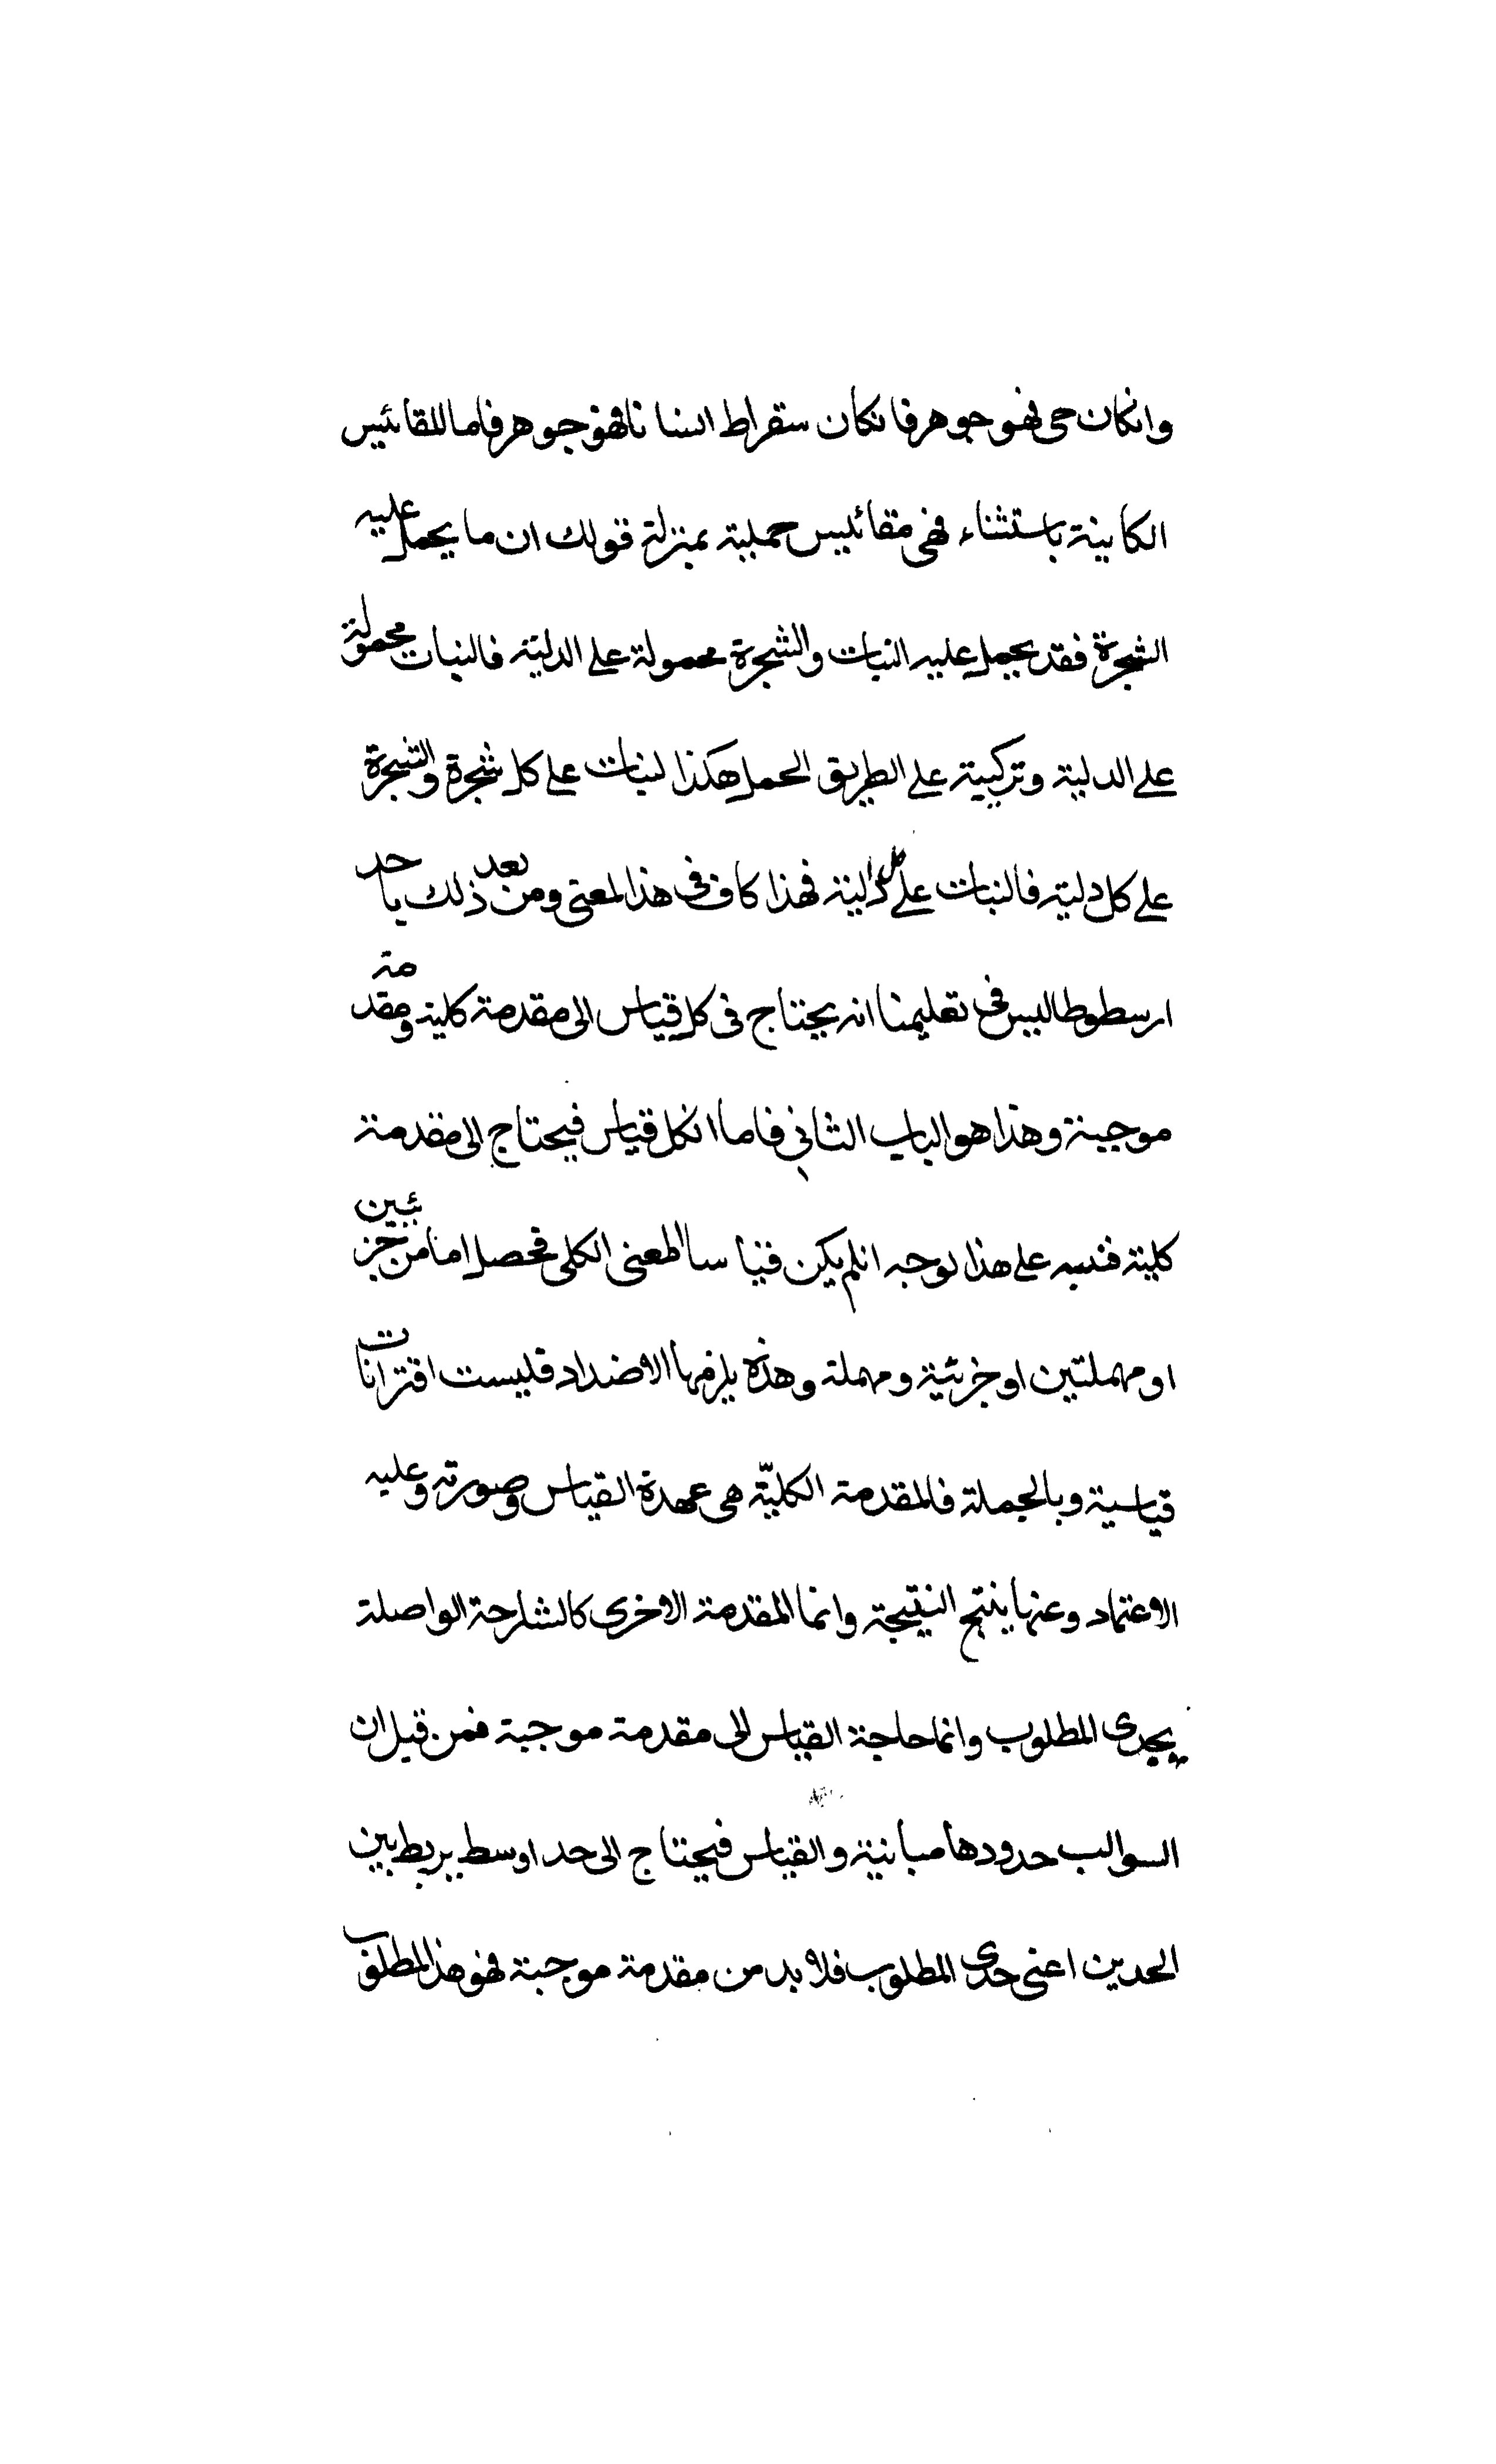 وانكان حى فهو جوهر فانكان سقراط انسانا فهو جوهر فاما المقائيس
الكاينة باستثناء فهى مقائيس حملية بمنزلة قولك ان ما يحمل عليه
الشجرة فقد يحمل عليه النبات والشجرة محمولة على الدلية فالنبات محمولة
على الدلية وتركيبة على الطريق الحمل هكذا لنبات على كل شجرة والشجرة
على كل دلية فالنبات على كل دالية فهذا كاف فى هذا المعنى ومن بعد ذلك ياحد
ارسطوطاليس فى تعليمنا انه يحتاج فى كل قياس الى مقدمة كلية ومقدمة
موجبة وهذا هو الباب الثانى فاما انكل قياس فيحتاج الى مقدمة
كلية على هذا لوجه انلم يكن قياسا المعنى الكلى فحصل اما من جزئيين
او مهملتين او جزئية ومهملة وهذه يلزمها الاضداد فليست اقترانات
قياسية وبالجملة فالمقدمة الكليّة هى عهدة القياس وصورته وعليه
الاعتماد وعنها ينتج النتيجة وانما المقدمة الاخرى كالشارحة الواصلة
يجدى المطلوب وانما حاجة القياس الى مقدمة موجبة فمن قبل ان
السوالب حدودها مباينة والقياس فيحتاج الى حد اوسط يربط بين
الحدين اعنى حدى المطلوب فلا بد من مقدمة موجبة فهو هذا المطلوب